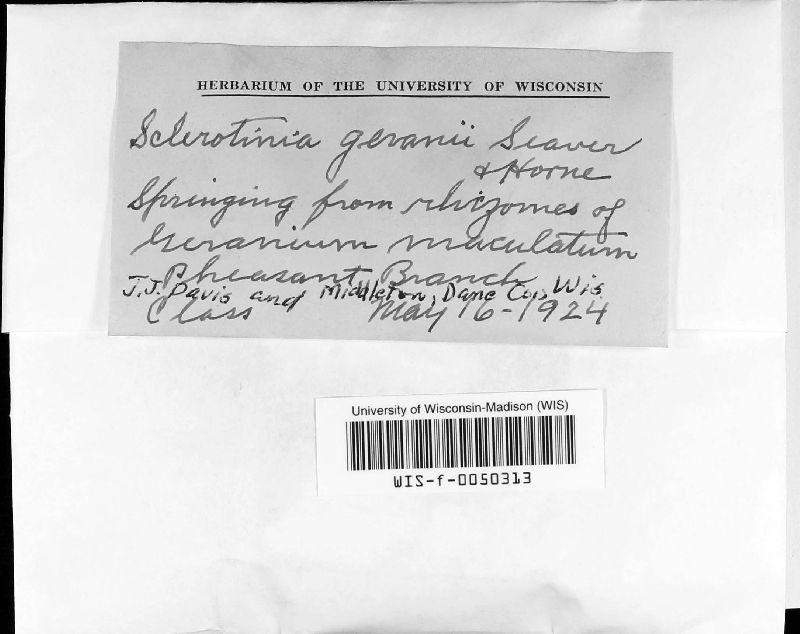 HERBARIUM OF THE UNIVERSITY OF WISCONSIN
Sclerotinia geranii Seaver
& Horne
Springing from rhizomes of
Geranium maculatum
Pheasant Branch
J.J. Davis and Middleton, Dane Co., Wis.
Class May 16-1924
University of Wisconsin-Madison (WIS)
WIS-f-0050313